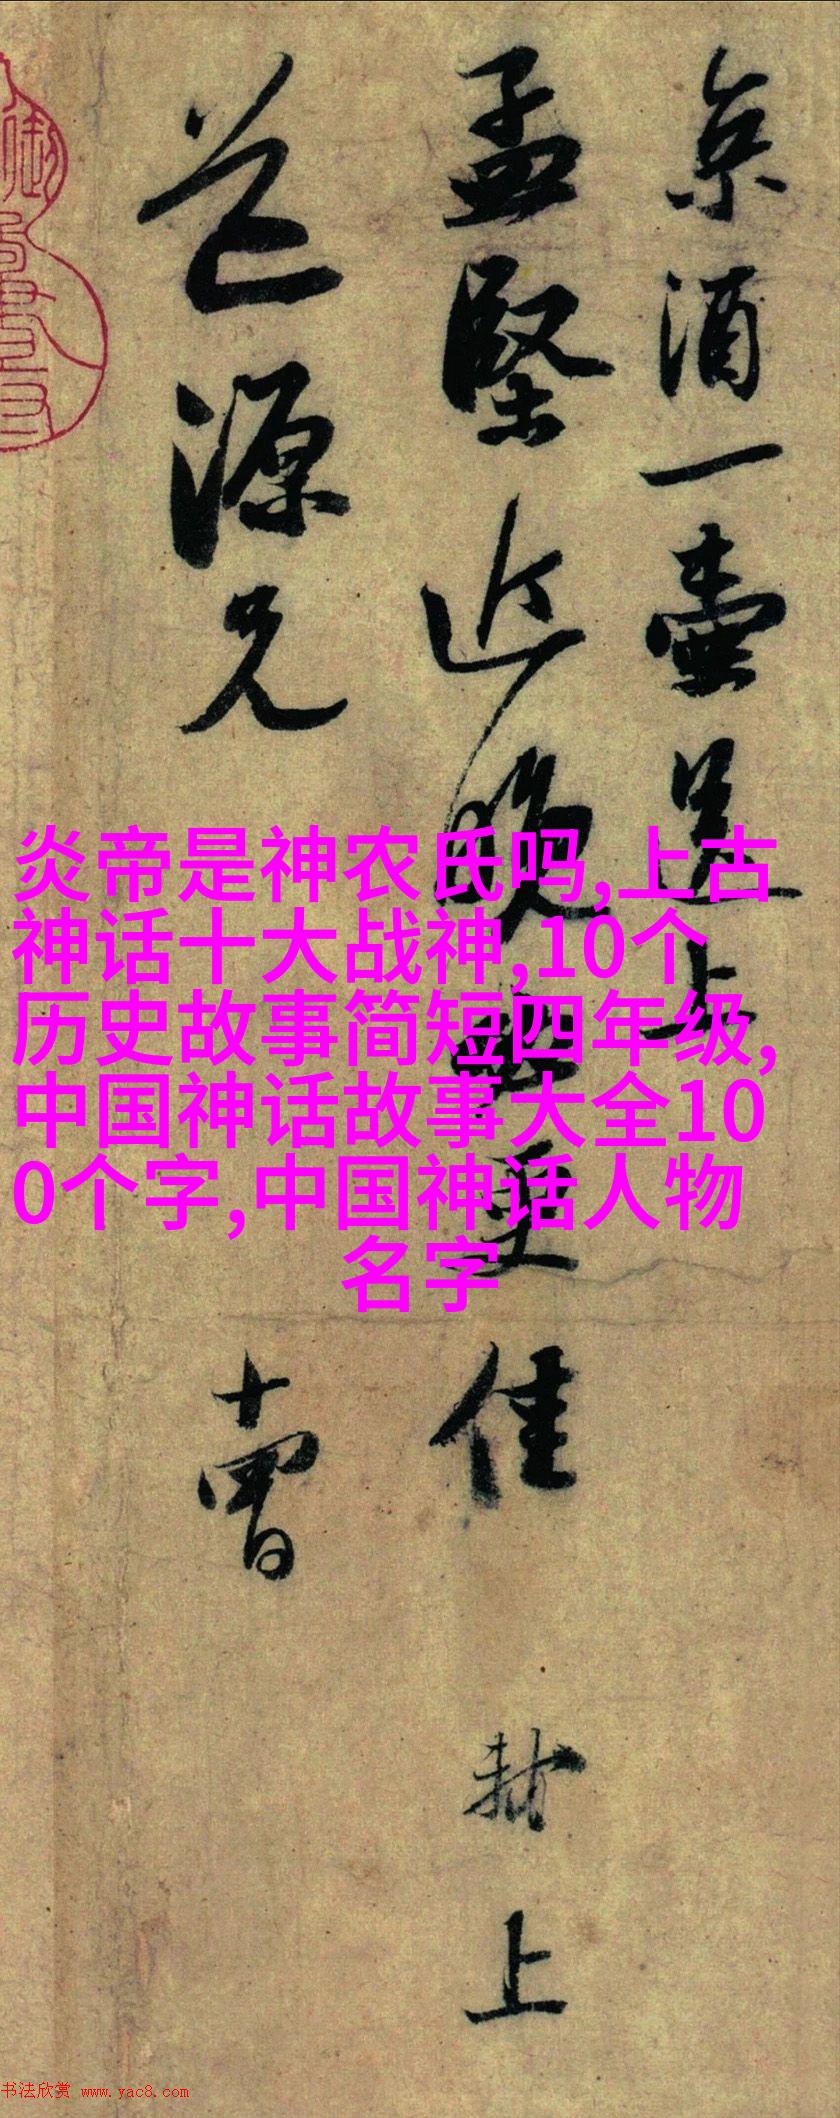 京酒一壺送上
孟堅近晚更佳 上
道源兄 十
炎帝是神农氏吗,上古
神话十大战神,10个
历史故事简短四年级,
中国神话故事大全10
0个字,中国神话人物
名字
书法欣赏 www.yac8.com